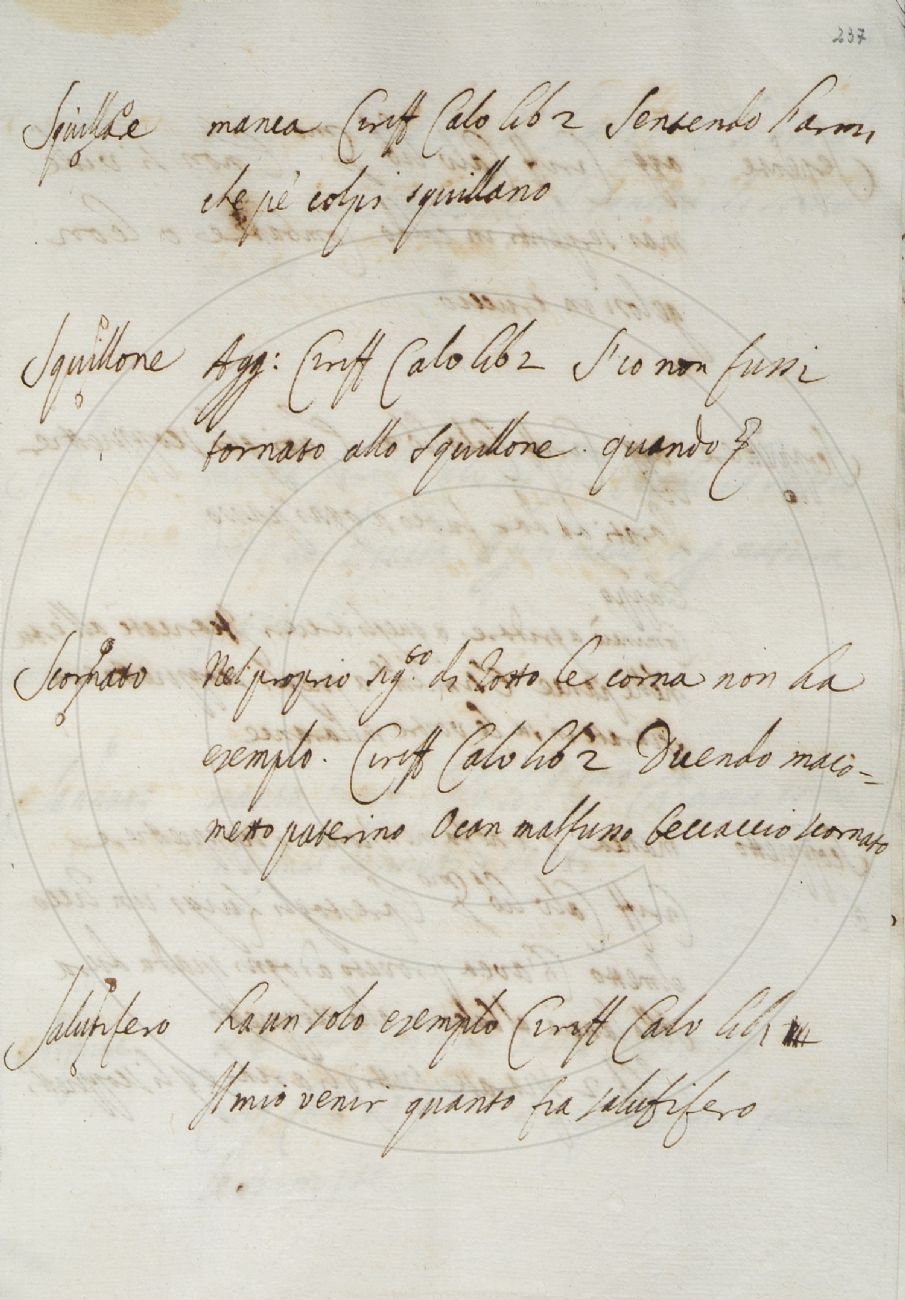 237
Squillare manca Ciriff Calv lib 2 Sentendo l'armi
che pe colpi squillano
Squillone Agg: Ciriff Calv lib 2 S'io non fussi
tornato allo squillone quando
Scornato Nel proprio sig.to di rotto le corna non ha
exemplo. Ciriff Calv lib 2 Dicendo maco=
metto paterino O can malfusso beccaccio scornato
Salutifero ha un solo exemplo Ciriff Calv lib
Il mio venir quanto fia salutifero